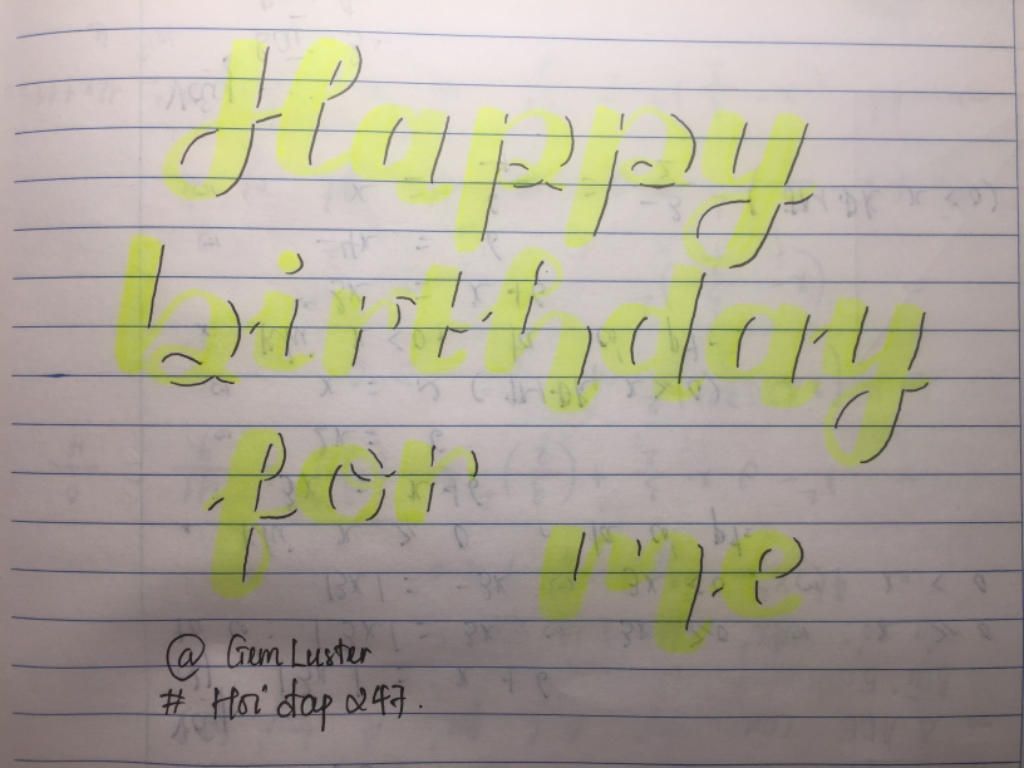 Happy
birthday
for
me
@ Gem Luster
# Hoi dap 247.